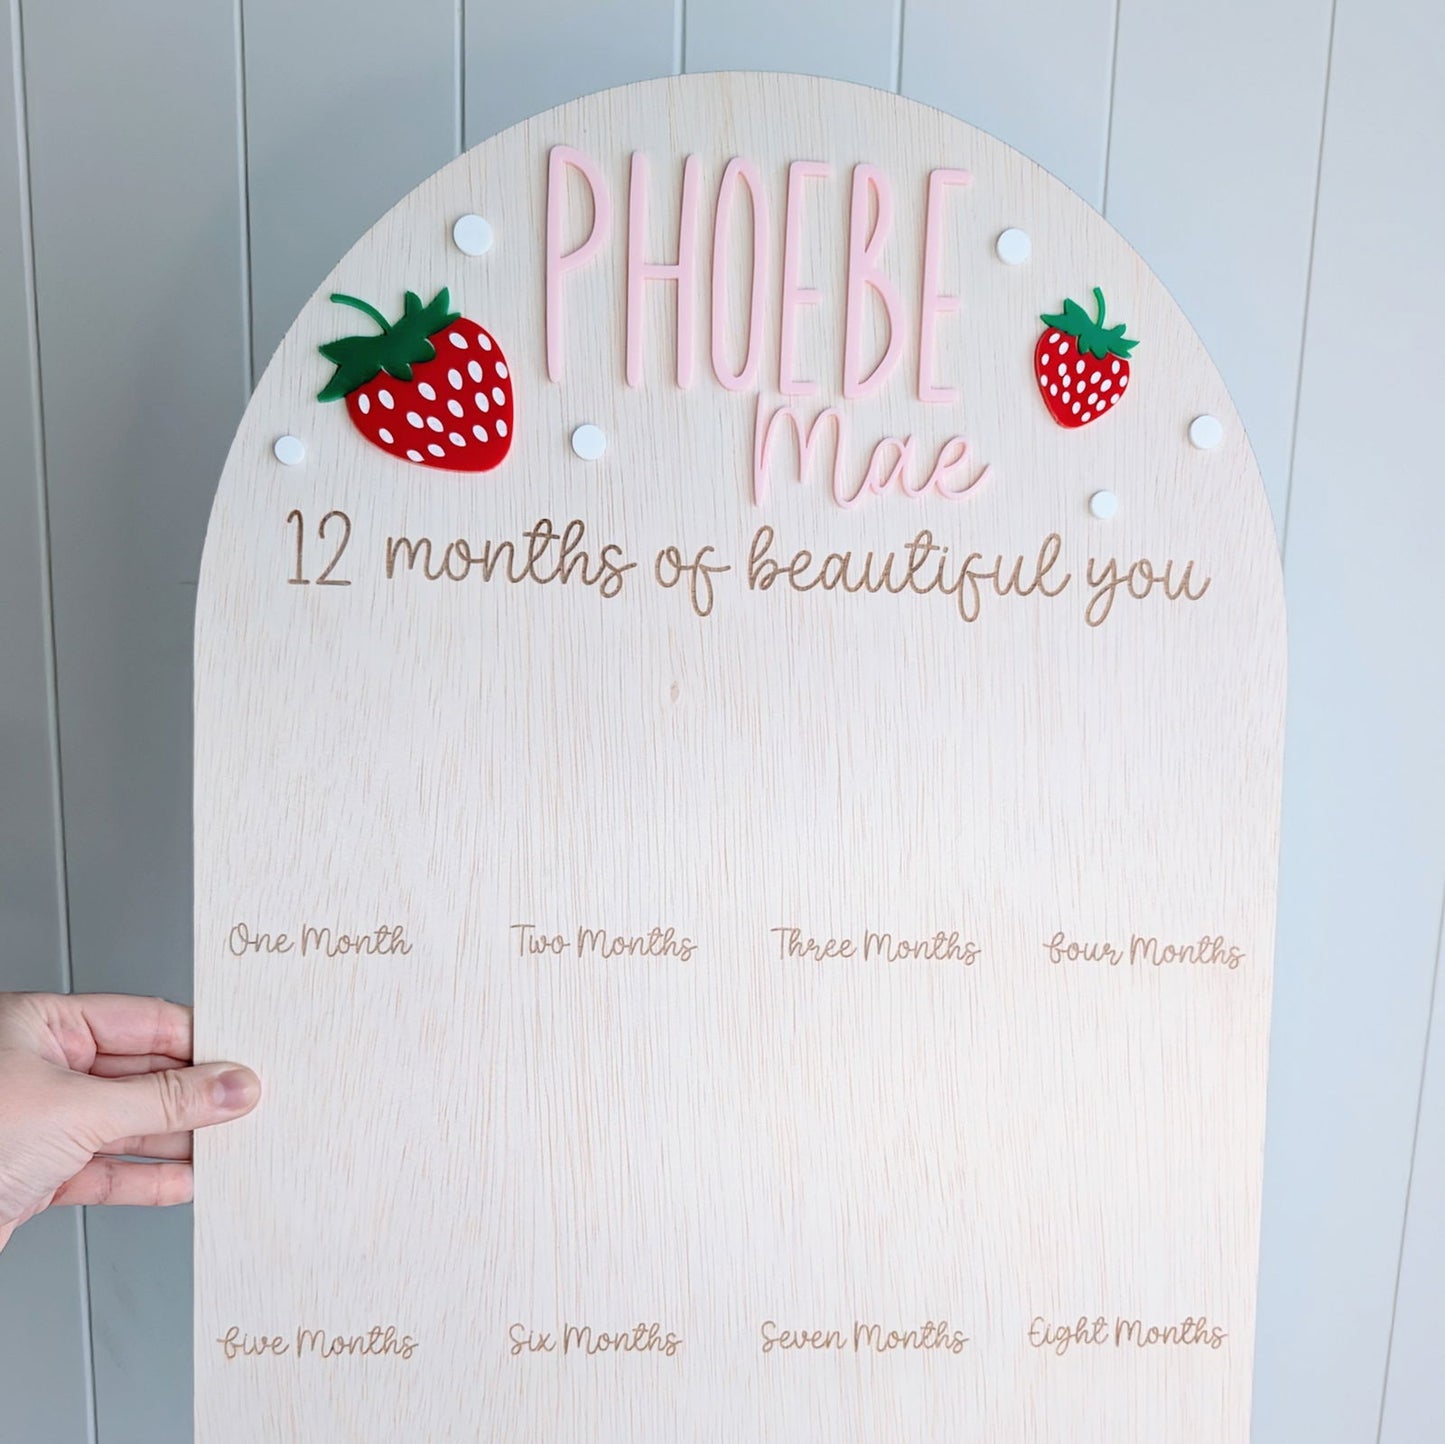 PHOEBE
Mae
12 months of beautiful you
One Month Two Months Three Months Four Months
Five Months Six Months Seven Months Eight Months